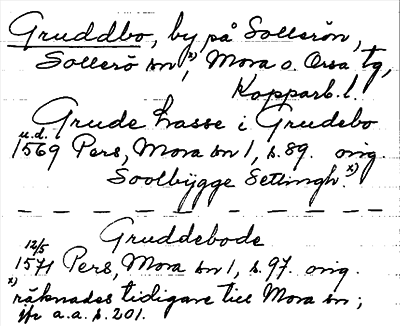 Gruddbo, by på Sollerön,
Sollerö sn x), Mora o. Orsa tg,
Kopparb. l.
Grude Lasse i Grudebo
u.d.
1569 Pers, Mora sn 1, s. 89. orig.
Soolbygge Settingh. x)
Gruddebode
12/5
1571 Pers, Mora sn 1, s. 97. orig.
x) räknades tidigare till Mora sn;
jfr a.a. s. 201.